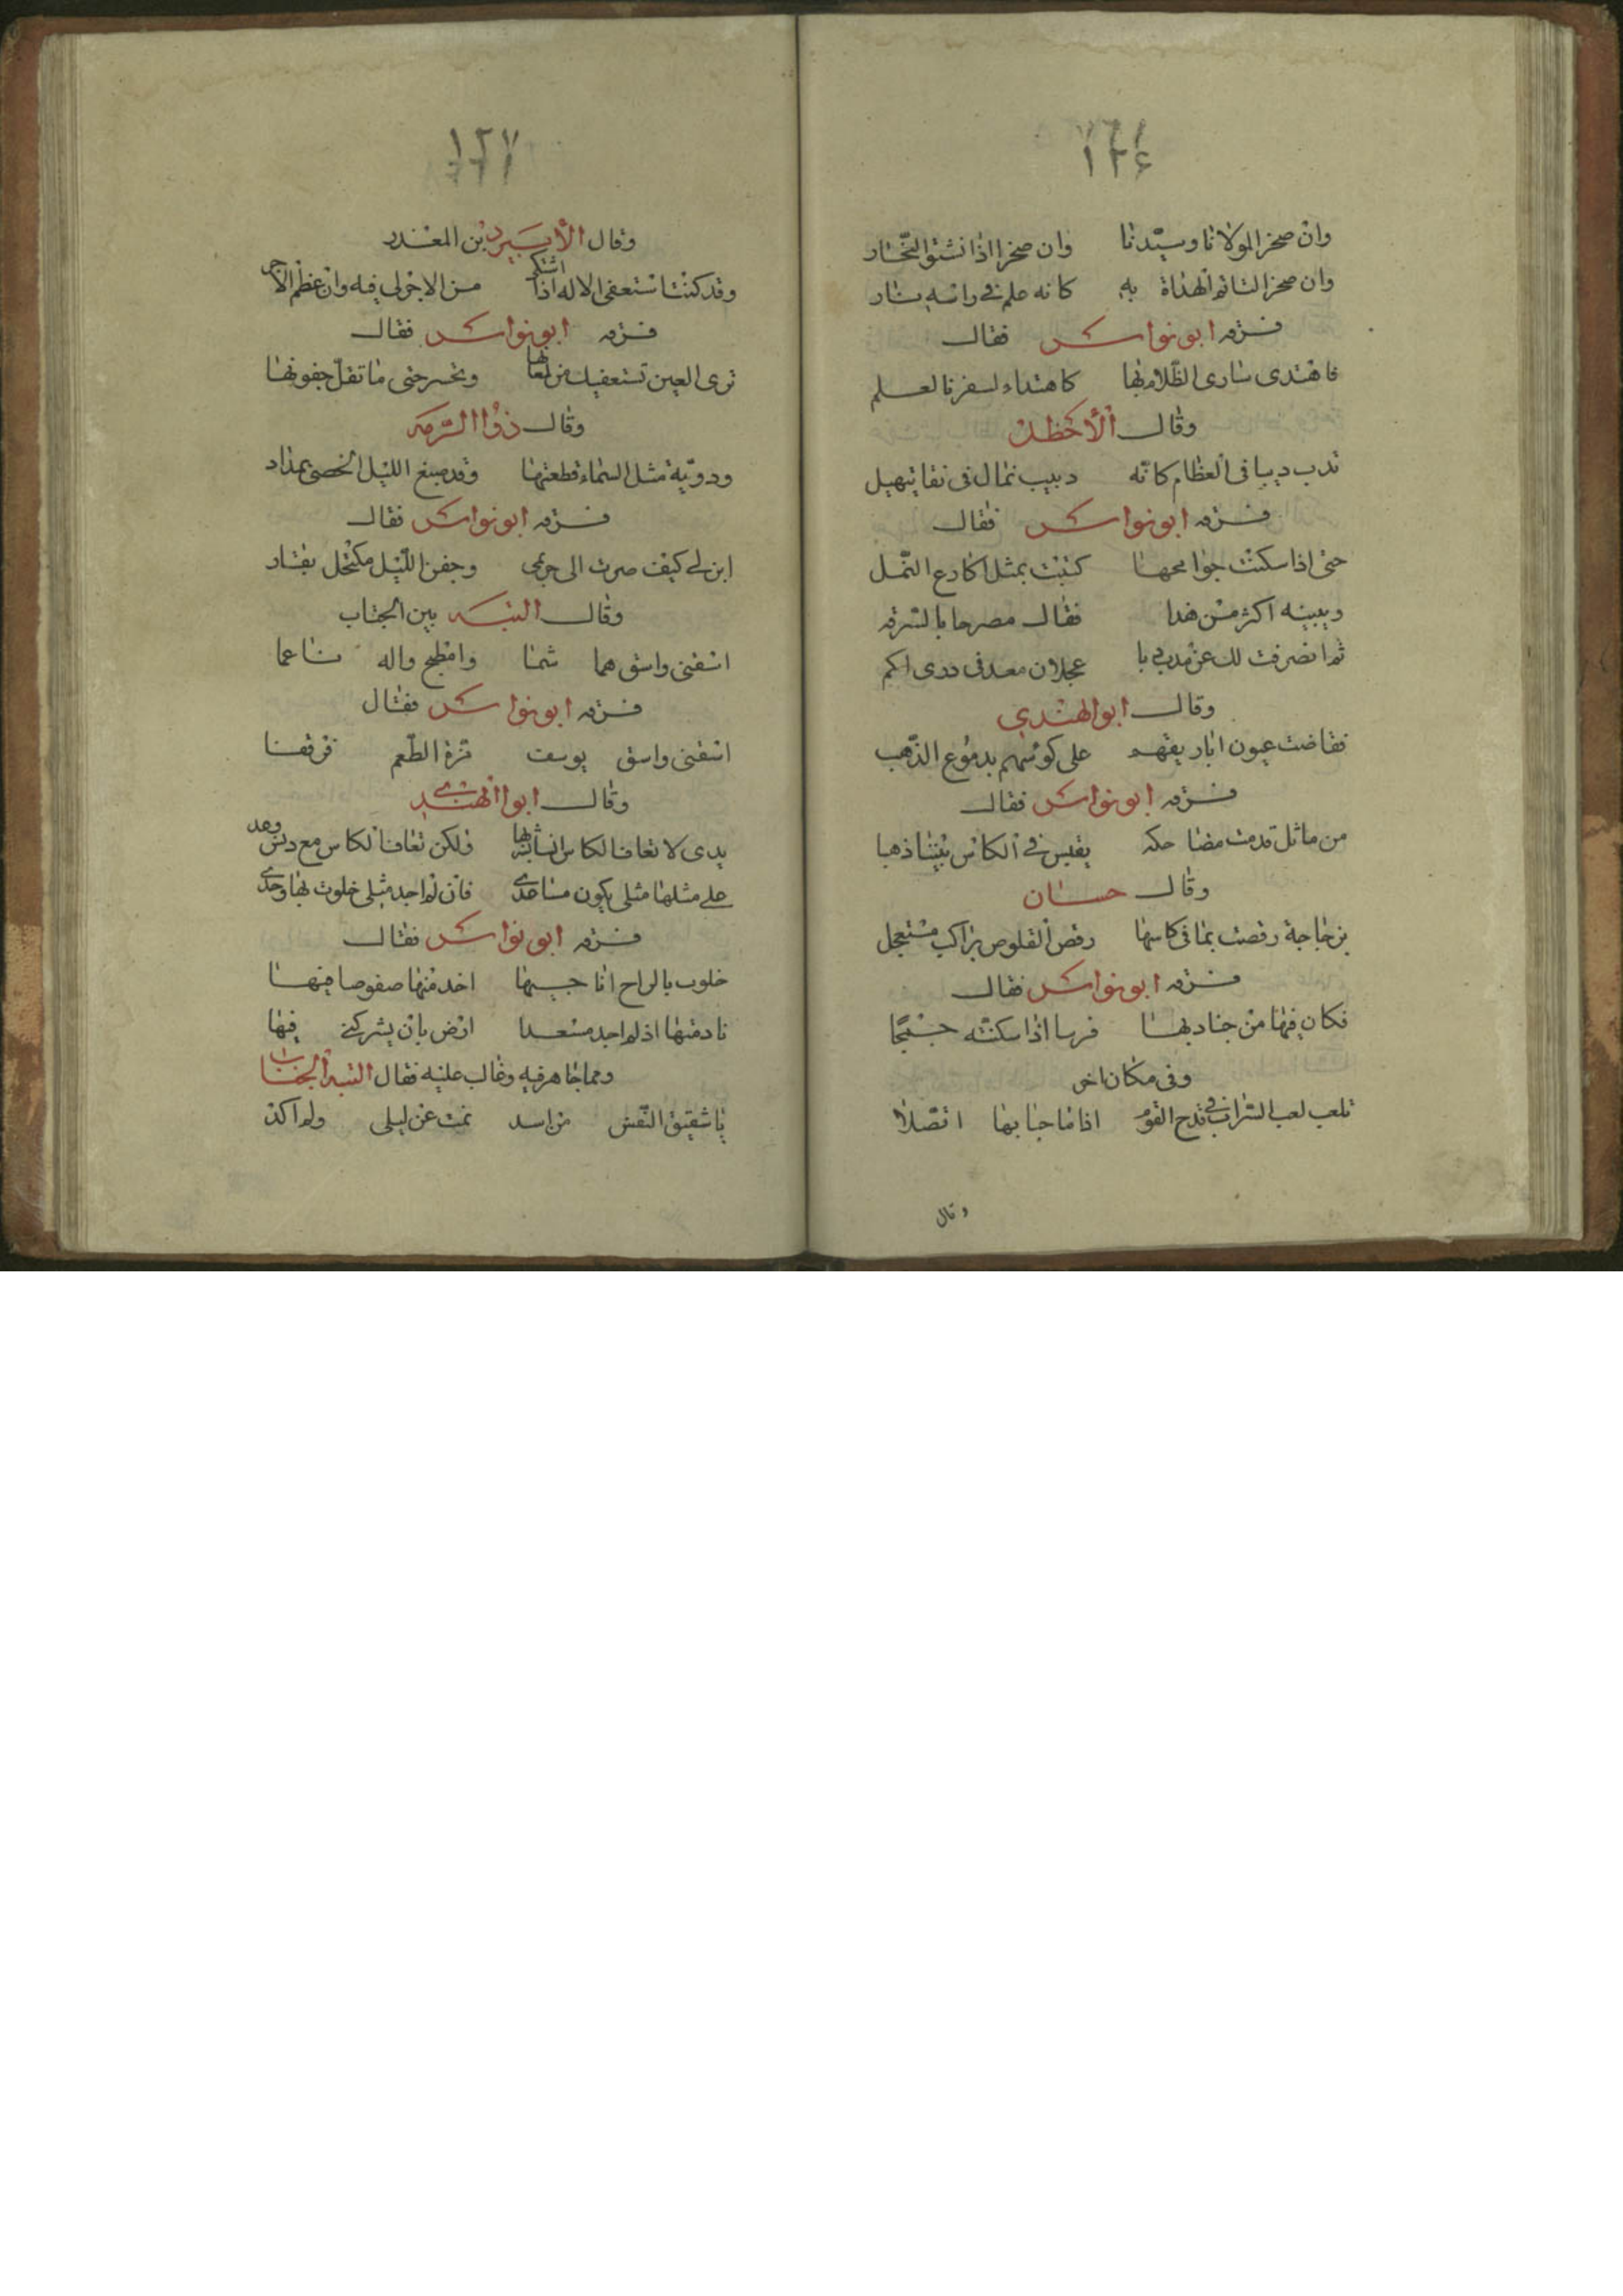 ١٢٦
وان صخرا لمولانا وسيّدنا وان صخرا اذا نشتو النحّار
وان صخرا لتاتم الهداة به كانه علم في راسه نار
سرقه ابو نواس فقال
فاهتدى سارى الظلام بها كاهتداء لسفر بالعلم
وقال الأخطل
تدب دبيبا فى العظام كانّه دبيب نمال فى نقا يتهيل
سرقه ابو نواس فقال
حتى اذا سكنت جوامحها كتبت بمثل اكارع النمل
وبيينه اكثر من هذا فقال مصرحا بالسرقه
ثم انصرفت لك عن
وقال ابو الهندي
ففاضت عيون اباريقهم على كوسهم بدموع الذّهب
سرقه ابو نواس فقال
من ماثل قدمت مضاحكه يقلس في الكاس بيننا ذهبا
وقال حسان
بزجاجة رقصت بما فى كاسها رقص القلوص براكب مستعجل
سرقه ابو نواس فقال
فكان فيها من جنادبها فرسا اذا سكنته
وفى مكان اخر
تلعب لعب السراب في قدح القوم اذا ما حبابها اتصلا
وقال
١٢٧
وقال الأبيرد بن المعذر
وقد كنت استعفى الاله اذا اشتكى من الاجر لي فيه وان عظم الاجر
سرقه ابو نواس فقال
ترى العين تستعفيك من لمعانها وتحسر حتى ما تقلّ جفونها
وقال ذو الرمه
ودويّة مثل السماء قطعتها وقد صبغ الليل الحصى بمداد
سرقه ابو نواس فقال
ابن لي كيف صرت الى حريمى وجفن اللّيل مكتحل بقار
وقال النبه بين الجناب
اسقنى واسق
سرقه ابو نواس فقال
اسقنى واسق يوسف مزة الطّعم قرقفا
وقال ابو الهندي
يدى لا تعاف الكاس
على مثلها مثلى يكون مساعدي فان لم اجد مثلى خلوت بها وحدي
سرقه ابو نواس فقال
خلوت بالراح اناجيها اخد منها
نادمتها اذ لم اجد مسعدا ارض بان يشركني فيها
ومما جاهر فيه وغالب عليه فقال
يا شقيق النّفس من اسد نمت عن ليلى ولم اكد